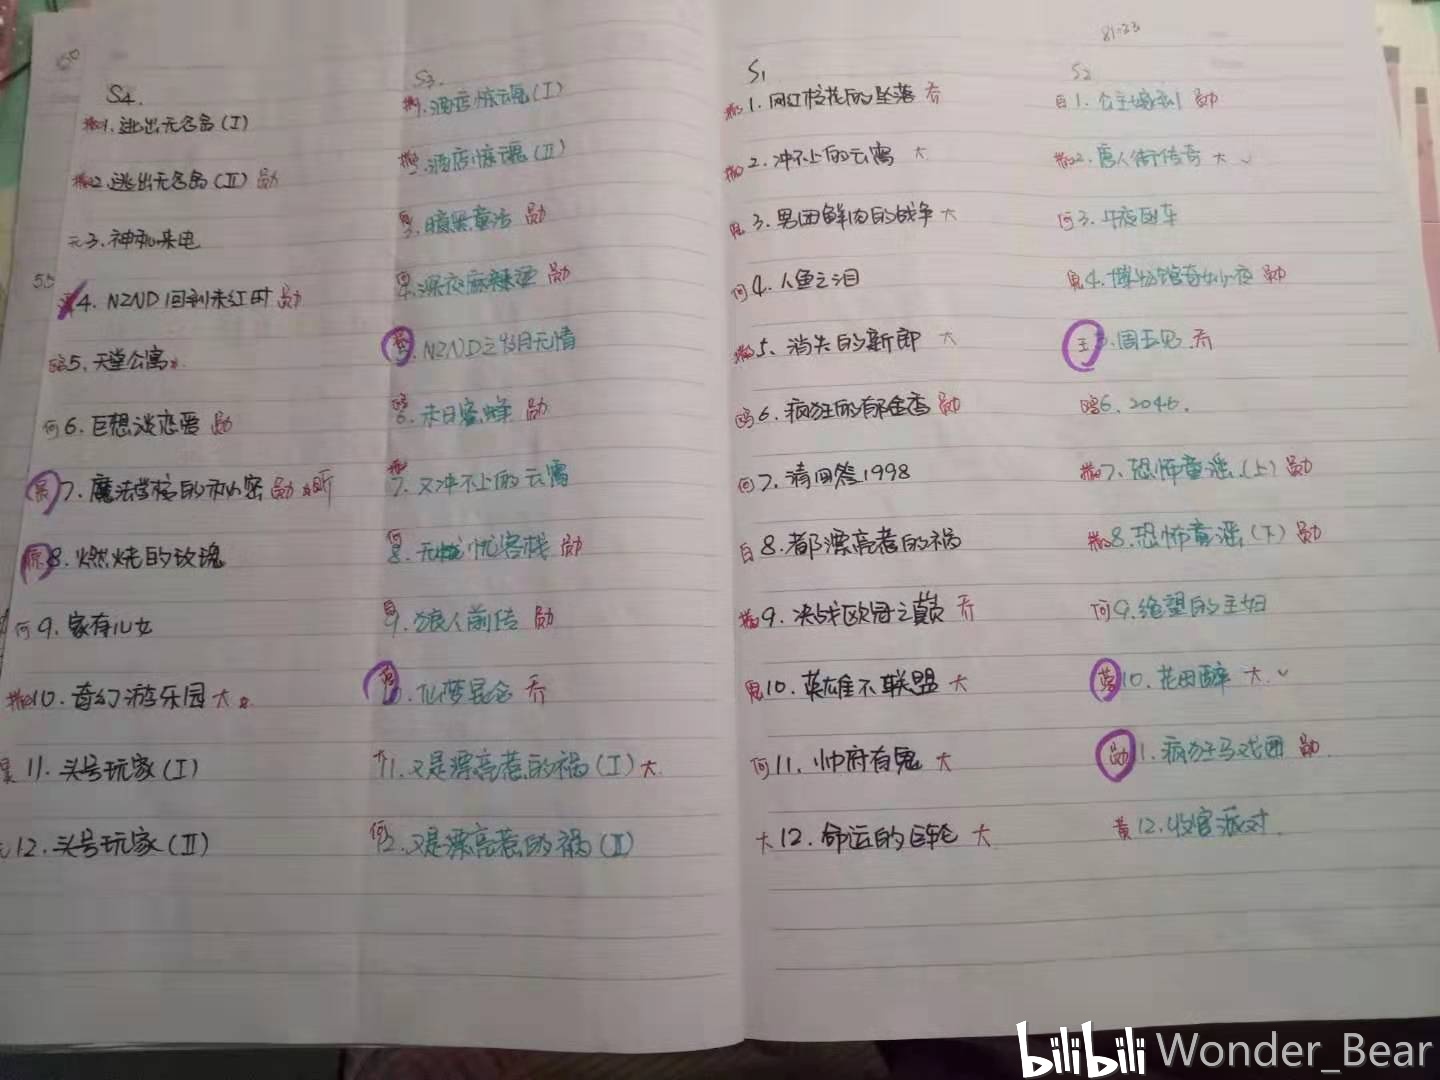 S4.
1.逃出无名岛(I)
2.逃出无名岛(II) 勋
3.神秘来电
55
4. NZND回到未红时 勋
鸥5.天堂公寓
何6.巨想谈恋爱 勋
7.魔法学校的秘密 勋
8.燃烧的玫瑰
何9.家有儿女
10.奇幻游乐园 大
11.头号玩家(I)
12.头号玩家(II)
S3.
1.酒店惊魂(I)
酒店惊魂(II)
暗黑童话 勋
深夜麻辣烫 勋
NZND之岁月无情
6.末日蜜蜂 勋
7.又冲不上的云霄
何8.无忧客栈 勋
9.狼人前传 勋
仙梦昆仑 乔
11.又是漂亮惹的祸(I) 大
何12.又是漂亮惹的祸(II)
81:23
S1
1.网红校花的坠落 乔
2.冲不上的云霄 大
鬼3.男团鲜肉的战争 大
何4.人鱼之泪
5.消失的新郎 大
鸥6.疯狂的郁金香 勋
7.请回答1998
白8.都是漂亮惹的祸
9.决战欧冠之巅 乔
鬼10.英雄不联盟 大
何11.帅府有鬼 大
大12.命运的巨轮 大
S2
白1.公主嫁到 勋
2.唐人街传奇 大
何3.午夜回车
鬼4.博物馆奇妙夜 勋
王5.周五见 乔
鸥6. 2046.
7.恐怖童谣(上) 勋
8.恐怖童谣(下) 勋
何9.绝望的主妇
10.花田醉 大
勋11.疯狂马戏团 勋
黄12.收官派对.
bilibili Wonder_Bear